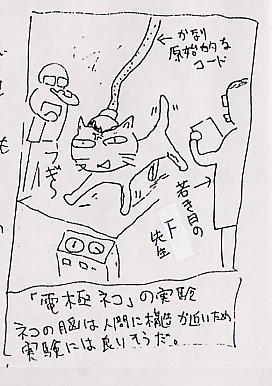 かなり
原始的な
コード
フギ〜
若き日の
F
先生
「電極ネコ」の実験
ネコの脳は人間に構造が近いため
実験には良いそうだ。
も